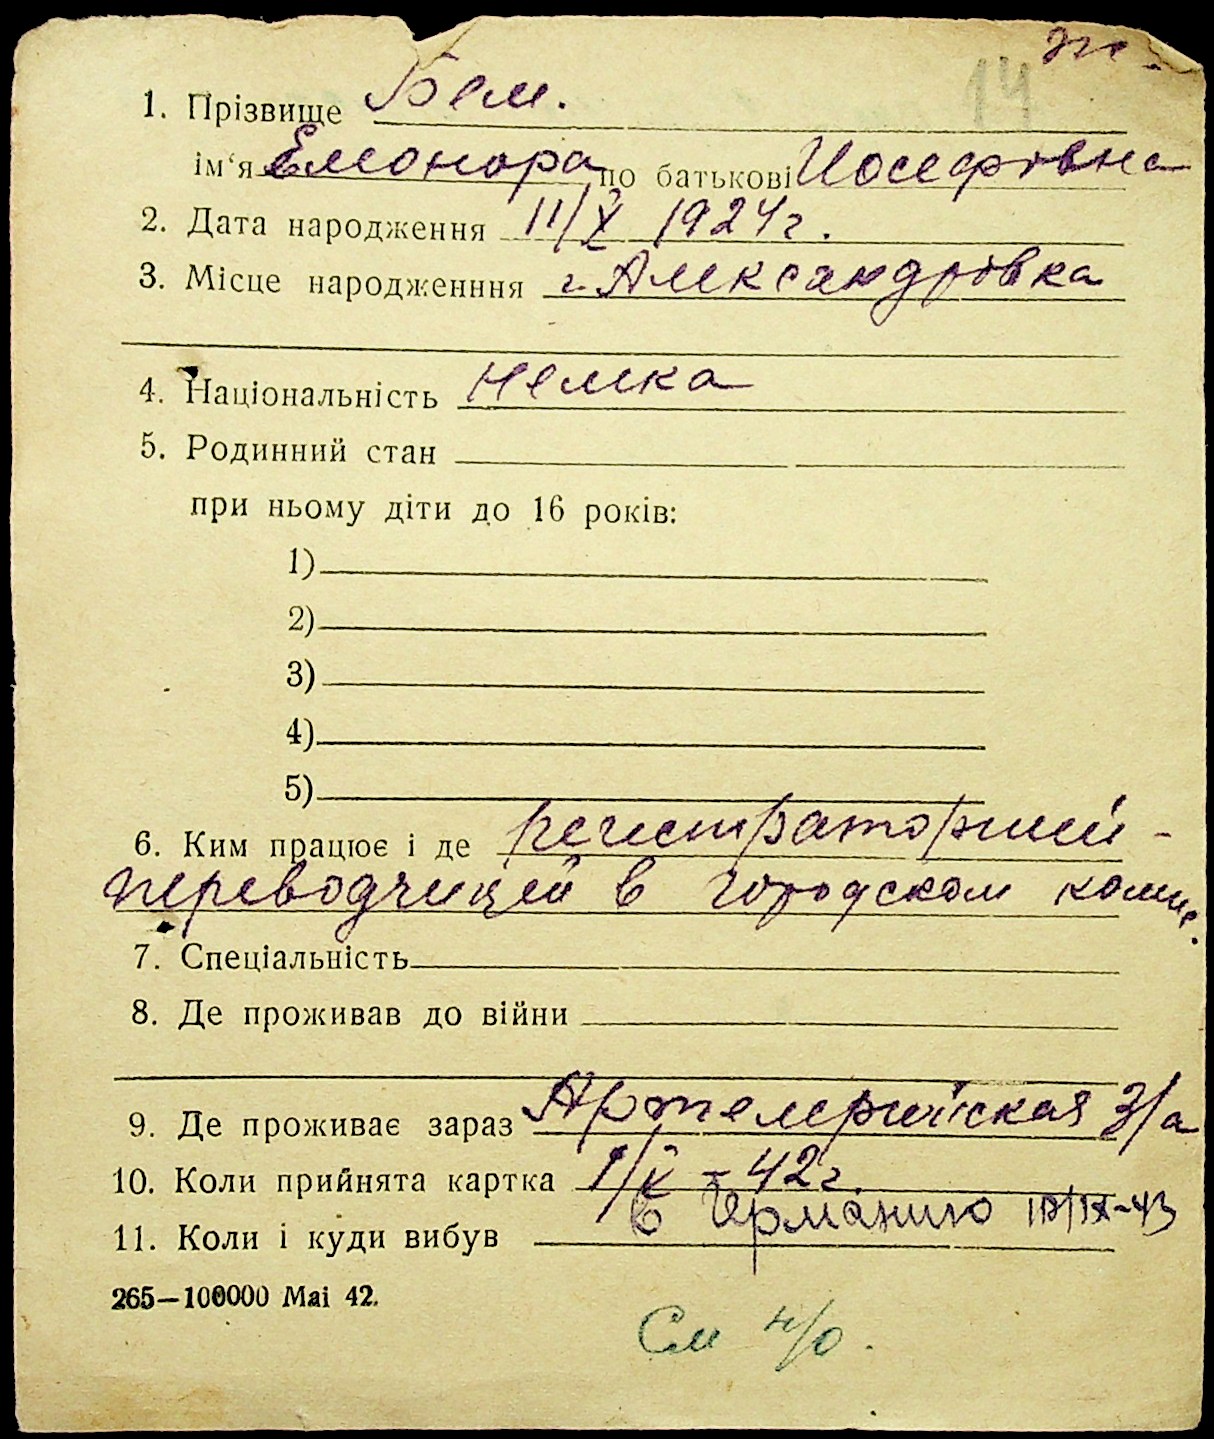 14 эк.
1. Прізвище Бем.
ім‘я Елеонора по батькові Иосефовна
2. Дата народження 11/X 1924 г.
3. Місце народженння г. Александровка
4. Національність немка
5. Родинний стан
при ньому діти до 16 років:
1)
2)
3)
4)
5)
6. Ким працює і де регистраторшей -
переводчицей в городском комис.
7. Спеціальність
8. Де проживав до війни
9. Де проживає зараз Артелерийская 3/а
10. Коли прийнята картка 1/X - 42 г.
11. Коли і куди вибув в Германию 18/IX-43
265—100000 Mai 42.
См н/о.